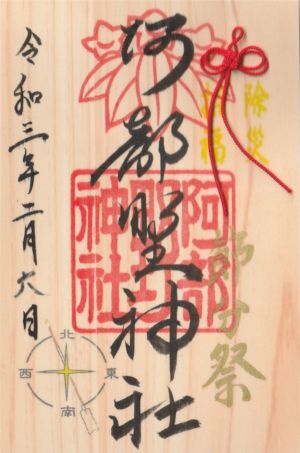 除災
招福
節分祭
阿部野神社
阿部野神社
令和三年二月六日
北
西 東
南